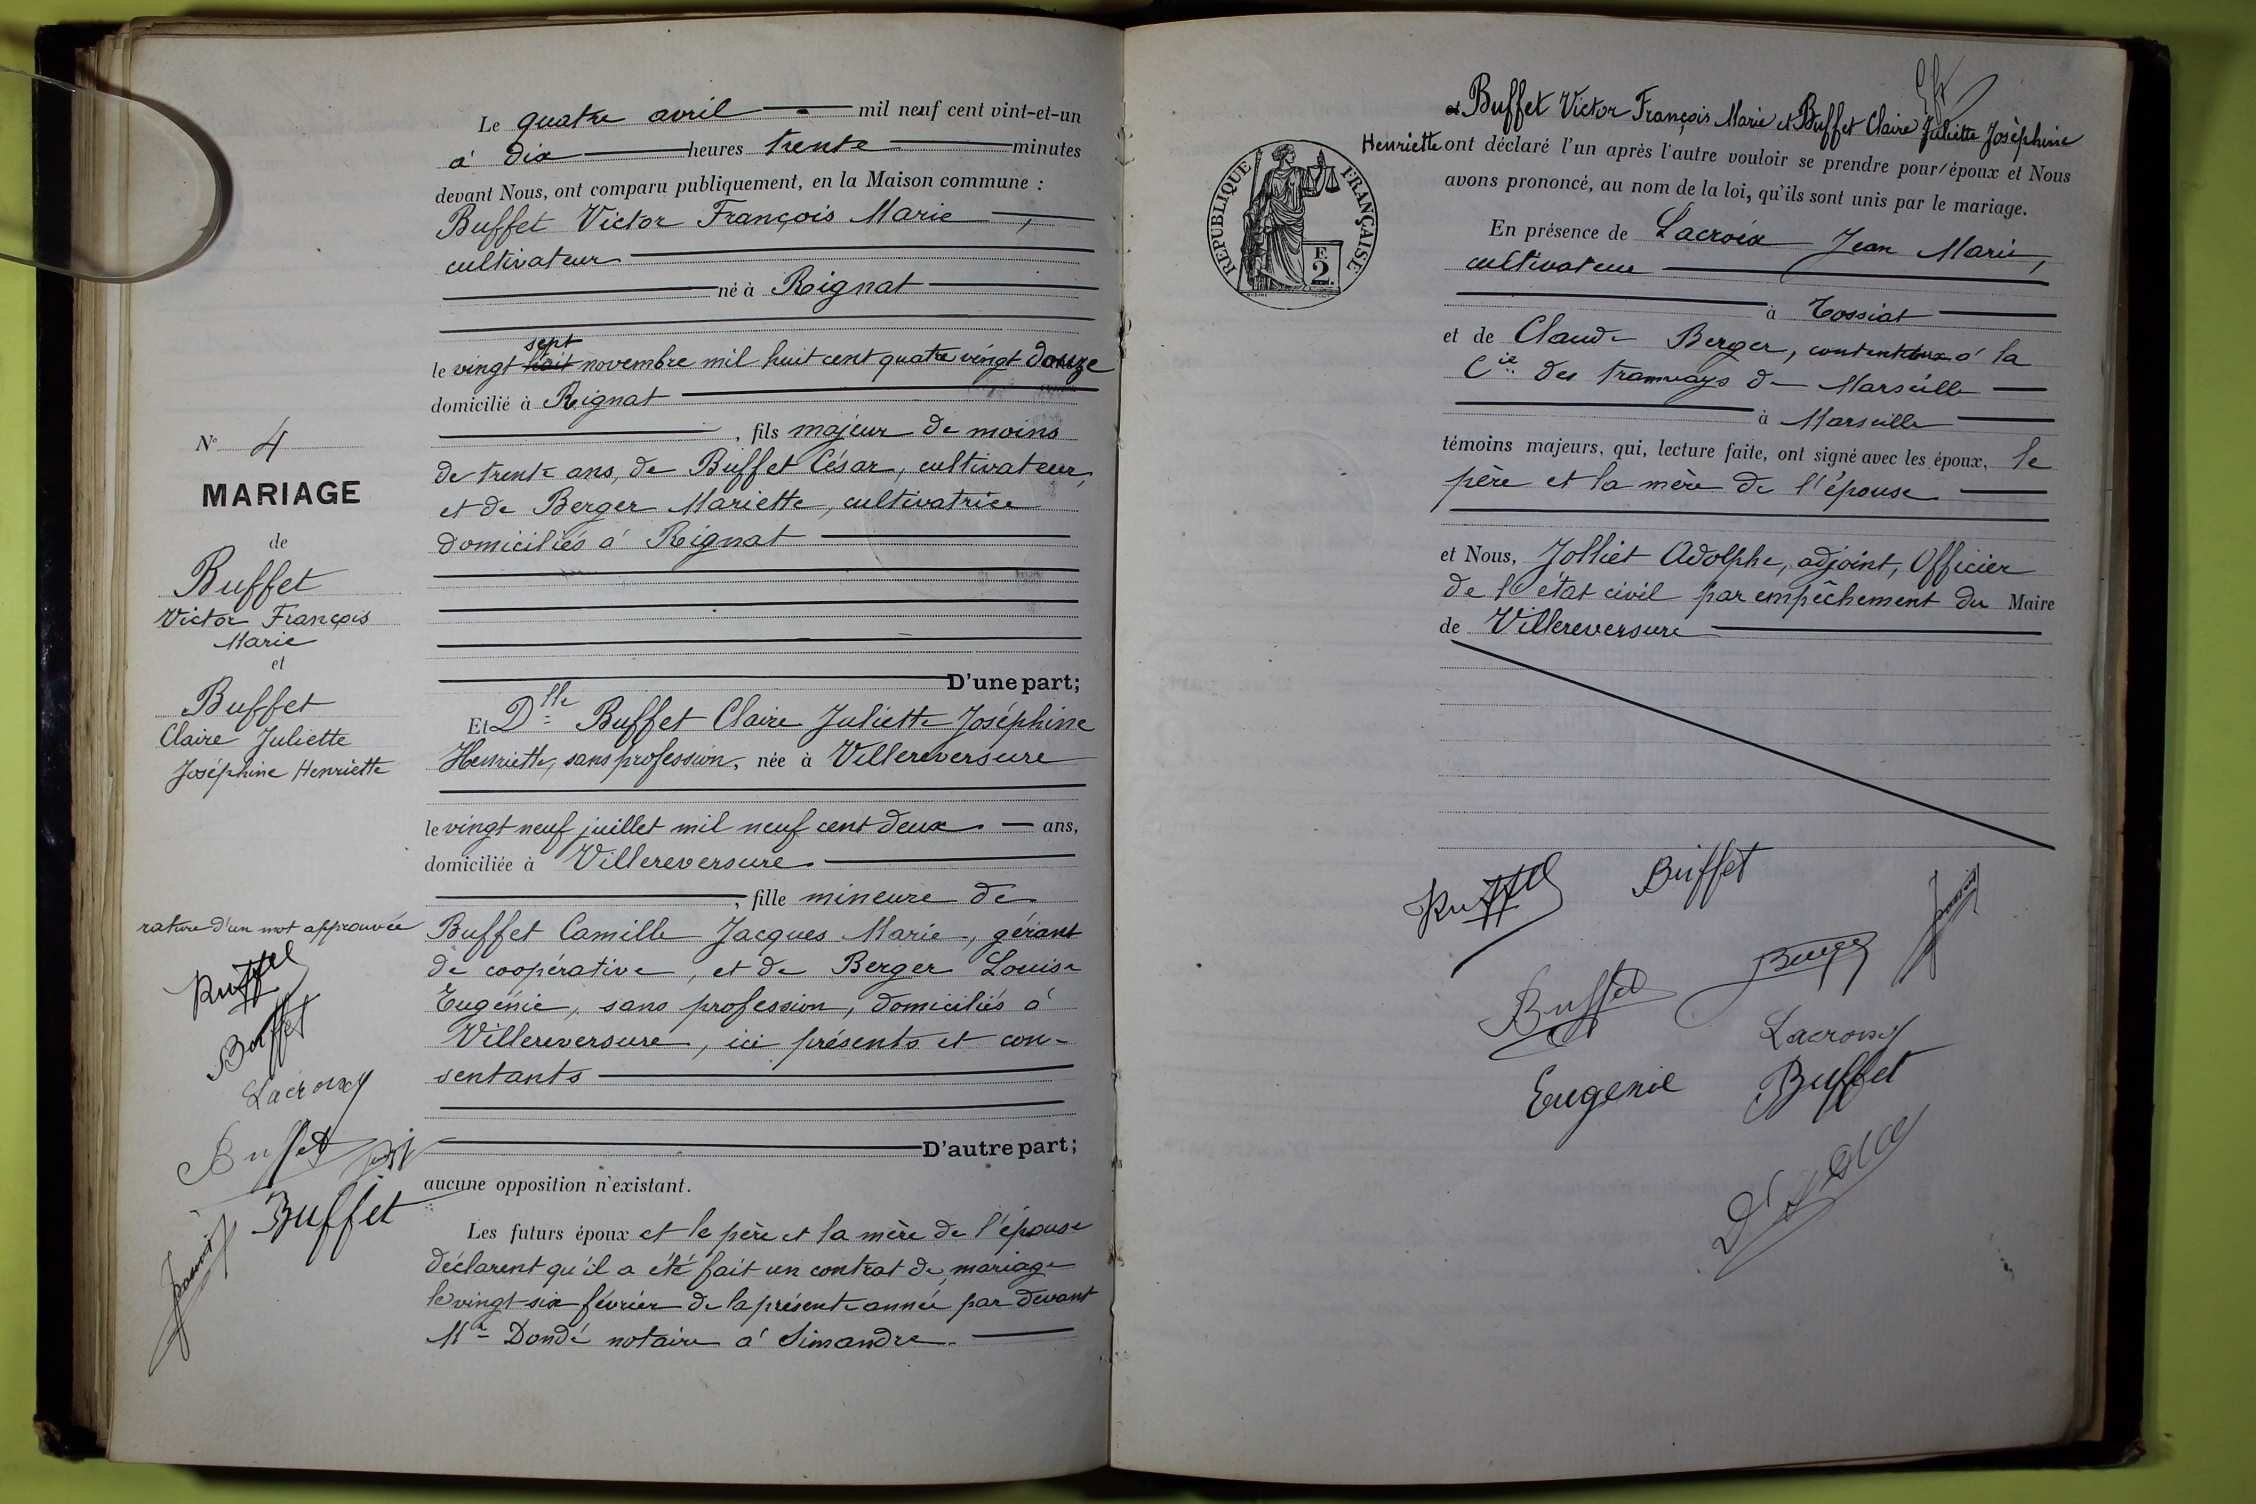 Le quatre avril mil neuf cent vint-et-un
à dix heures trente minutes
devant Nous, ont comparu publiquement, en la Maison commune :
Buffet Victor François Marie,
cultivateur
né à Rignat
sept
le vingt huit novembre mil huit cent quatre vingt douze
domicilié à Rignat
, fils majeur de moins
de trente ans, de Buffet César, cultivateur,
et de Berger Mariette, cultivatrice
domiciliés à Rignat
D'une part;
Et Dlle Buffet Claire Juliette Joséphine
Henriette, sans profession, née à Villereversure
le vingt neuf juillet mil neuf cent deux ans,
domiciliée à Villereversure
, fille mineure de
Buffet Camille Jacques Marie, gérant
de coopérative, et de Berger Louise
Eugénie, sans profession, domiciliés à
Villereversure, ici présents et con-
sentants
D'autre part;
aucune opposition n'existant.
Les futurs époux et le père et la mère de l'épouse
déclarent qu'il a été fait un contrat de mariage
le vingt-six février de la présente année par devant
Me Dondé notaire à Simandre.
No 4
MARIAGE
de
Buffet
Victor François
Marie
et
Buffet
Claire Juliette
Joséphine Henriette
rature d'un mot approuvée
Buffet
Buffet
Lacroix
Buffet
Buffet
et Buffet Victor François Marie et Buffet Claire Juliette Joséphine
Henriette ont déclaré l'un après l'autre vouloir se prendre pour époux et Nous
avons prononcé, au nom de la loi, qu'ils sont unis par le mariage.
En présence de Lacroix Jean Marie,
cultivateur
à Tossiat
et de Claude Berger, à la
Cie des tramways de Marseille
à Marseille
témoins majeurs, qui, lecture faite, ont signé avec les époux, le
père et la mère de l'épouse
et Nous, Jolliet Adolphe, adjoint, Officier
de l'état civil par empêchement du Maire
de Villereversure
REPUBLIQUE FRANÇAISE
F.
2.
Buffet
Buffet
Buffet
Lacroix
Eugenie Buffet